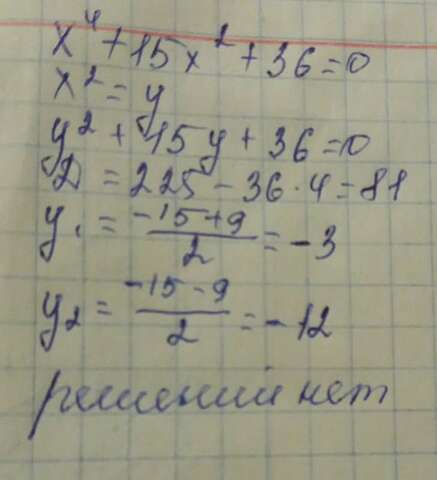 x⁴+15x²+36=0
x²=y
y²+15y+36=0
D=225-36·4=81
y₁=(-15+9)/2=-3
y₂=(-15-9)/2=-12
решений нет